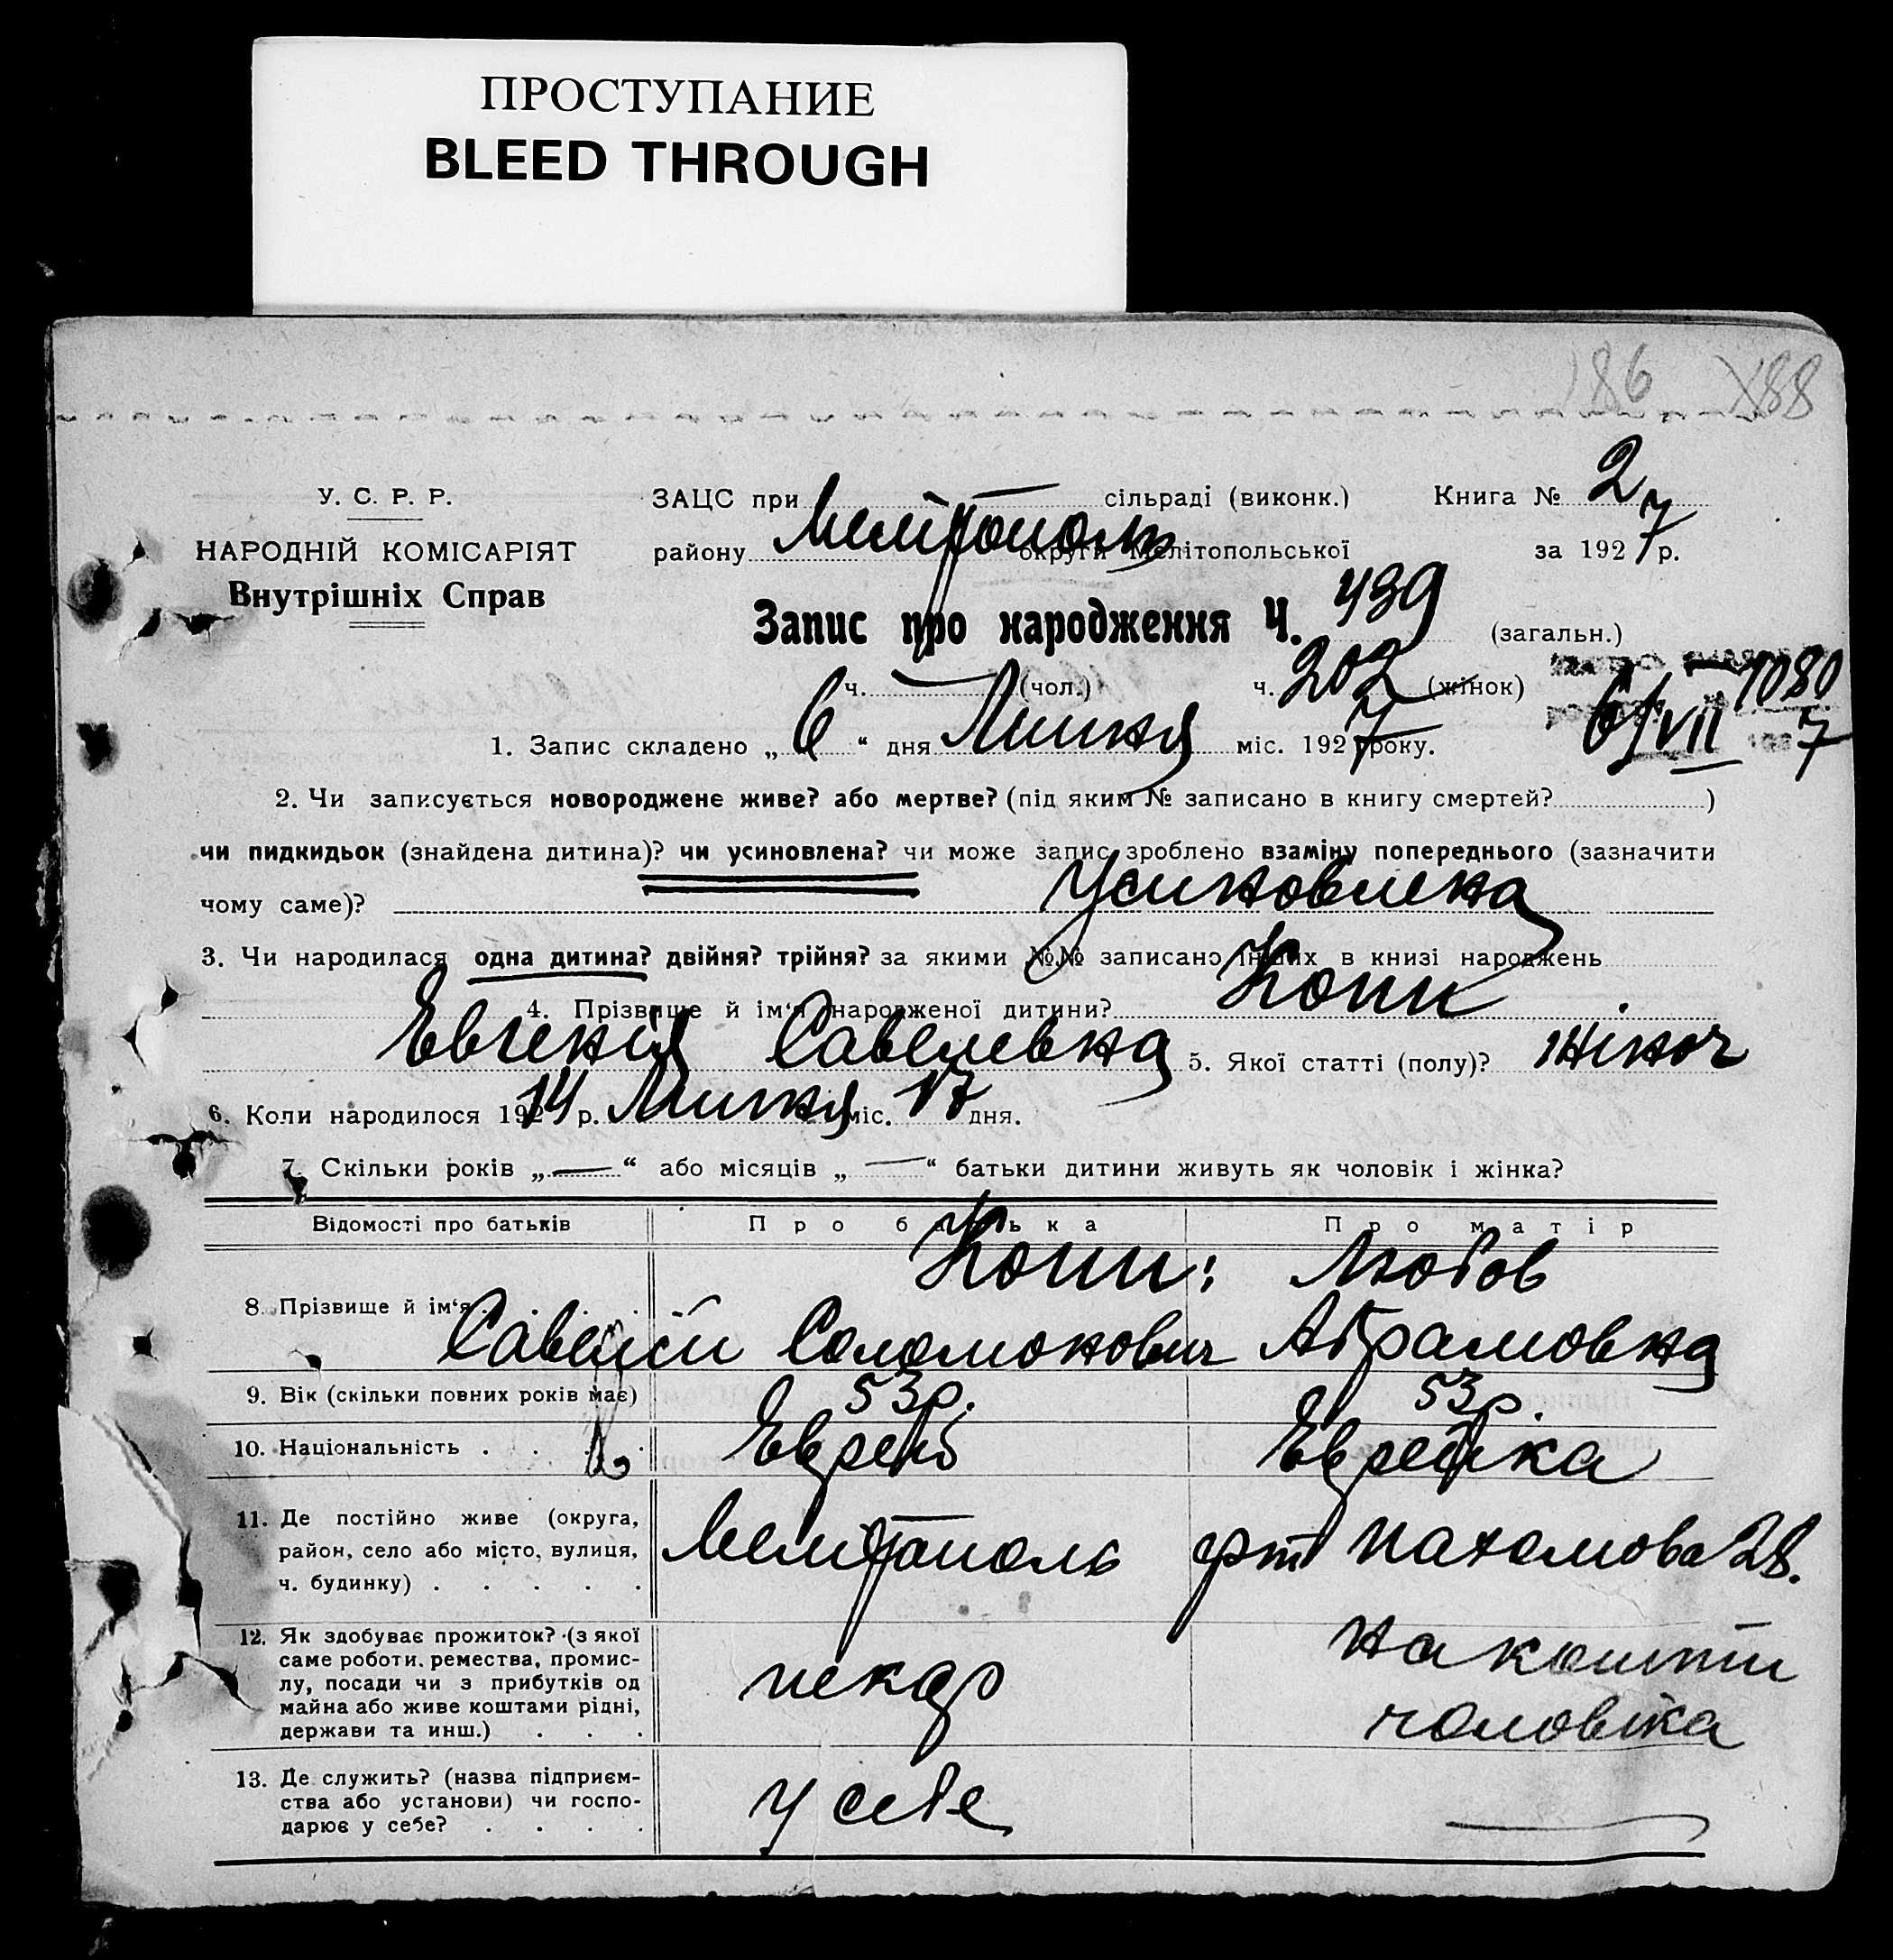 ПРОСТУПАНИЕ
BLEED THROUGH
186 188
У. С. Р. Р.
НАРОДНІЙ КОМІСАРІЯТ
Внутрішніх Справ
ЗАЦС при сільраді (виконк.) Книга № 2
району Мелітополь округи Мелітопольської за 1927 р.
Запис про народження Ч. 439 (загальн.)
ч. — (чол.) ч. 202 (жінок)
1080
6/VII 7
1. Запис складено „ 6 “ дня Липня міс. 1927 року.
2. Чи записується новороджене живе? або мертве? (під яким № записано в книгу смертей? )
чи пидкидьок (знайдена дитина)? чи усиновлена? чи може запис зроблено взаміну попереднього (зазначити
чому саме)? Усиновлена
3. Чи народилася одна дитина? двійня? трійня? за якими №№ записано інших в книзі народжень
4. Прізвище й ім‘я народженої дитини? Копп
Евгенія Савелевна 5. Якої статті (полу)? жіноч
6. Коли народилося 19214 р. Липня міс. 17 дня.
7. Скільки років „ — “ або місяців „ — “ батьки дитини живуть як чоловік і жінка?
Відомості про батьків Про батька Про матір
Копп: Любов
8. Прізвище й ім‘я . . . .
Савелій Соломонович Абрамовна
9. Вік (скільки повних років має) 53р. 53р.
10. Національність . . . . Еврей Еврейка
11. Де постійно живе (округа,
район, село або місто, вулиця, Мелітополь Пахомова 28.
ч. будинку) . . . . .
12. Як здобуває прожиток? (з якої
саме роботи, ремества, промис-
лу, посади чи з прибутків од
майна або живе коштами рідні,
держави та инш.) . . .
пекар
на кошти
чоловіка
13. Де служить? (назва підприєм-
ства або установи) чи госпо-
дарює у себе? . . . .
у себе —